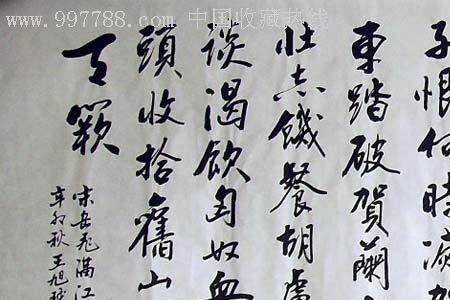 www.997788.com 中国收藏热线
子恨何時滅
車踏破賀蘭
壯志饑餐胡虜
談渴飲匈奴血
頭收拾舊山
天闕
宋岳飛滿江
辛卯秋王旭